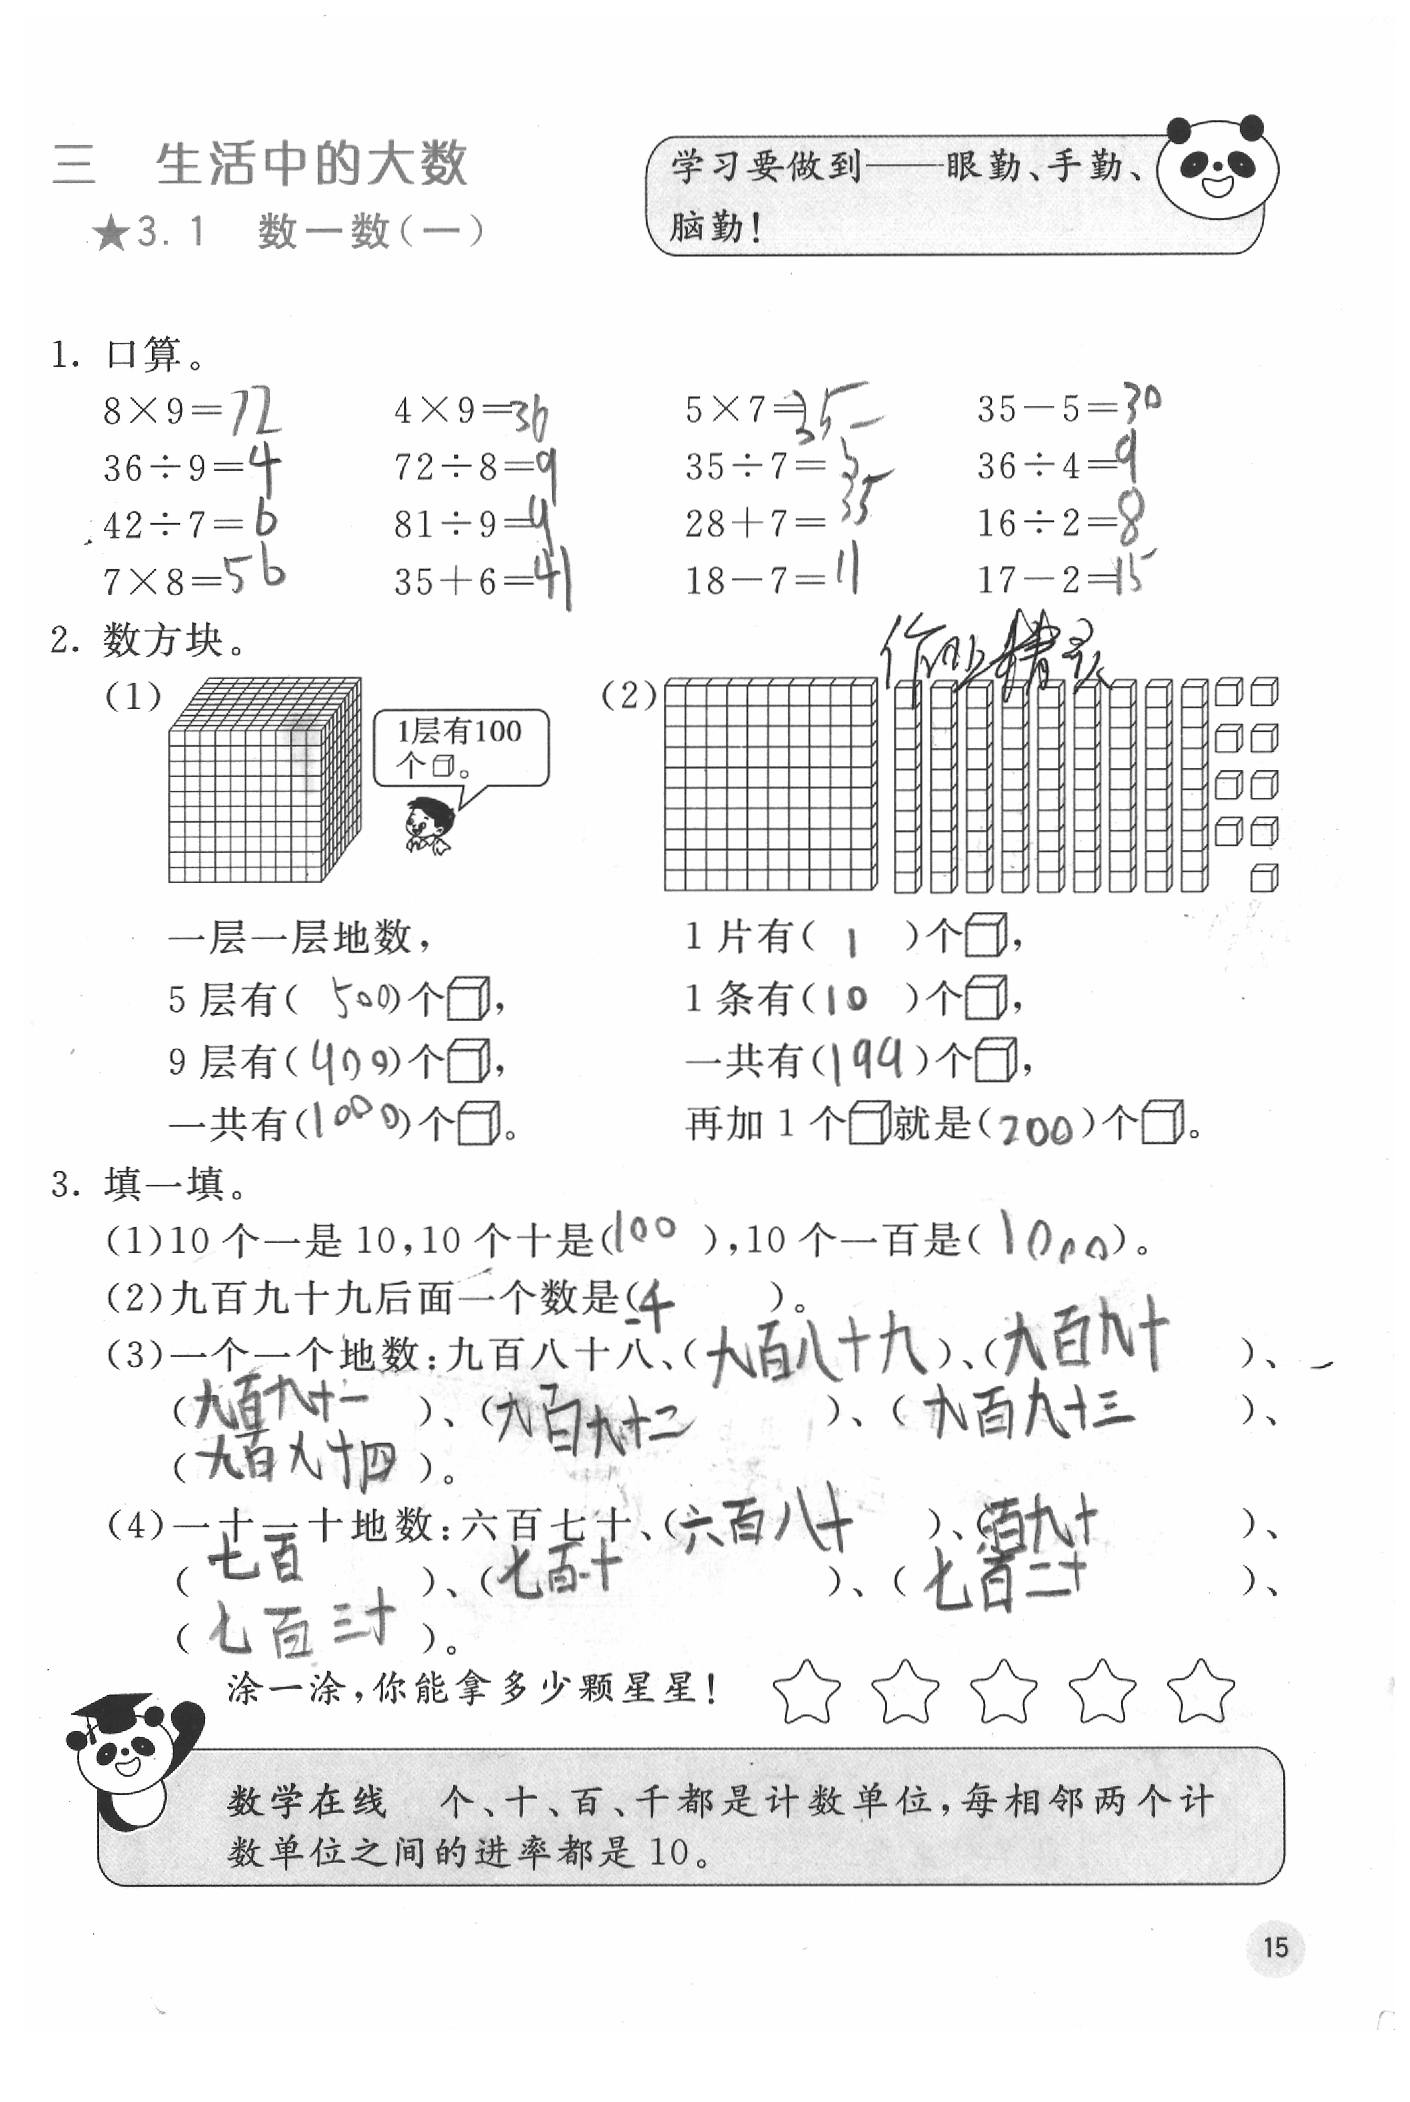 三 生活中的大数
★3.1 数一数(一)
学习要做到——眼勤、手勤、
脑勤!
1. 口算。
8×9=72 4×9=36 5×7=35 35-5=30
36÷9=4 72÷8=9 35÷7=5 36÷4=9
42÷7=6 81÷9=9 28+7=35 16÷2=8
7×8=56 35+6=41 18-7=11 17-2=15
2. 数方块。
作业精灵
(1) (2)
1层有100
个。
一层一层地数,
5层有(500)个,
9层有(909)个,
一共有(1000)个。
1片有(1)个,
1条有(10)个,
一共有(199)个,
再加1个就是(200)个。
3. 填一填。
(1)10个一是10,10个十是(100),10个一百是(1000)。
(2)九百九十九后面一个数是(一千)。
(3)一个一个地数:九百八十八、(九百八十九)、(九百九十)、
(九百九十一)、(九百九十二)、(九百九十三)、
(九百九十四)。
(4)一十一十地数:六百七十、(六百八十)、(六百九十)、
(七百)、(七百一十)、(七百二十)、
(七百三十)。
涂一涂,你能拿多少颗星星!
数学在线 个、十、百、千都是计数单位,每相邻两个计
数单位之间的进率都是10。
15